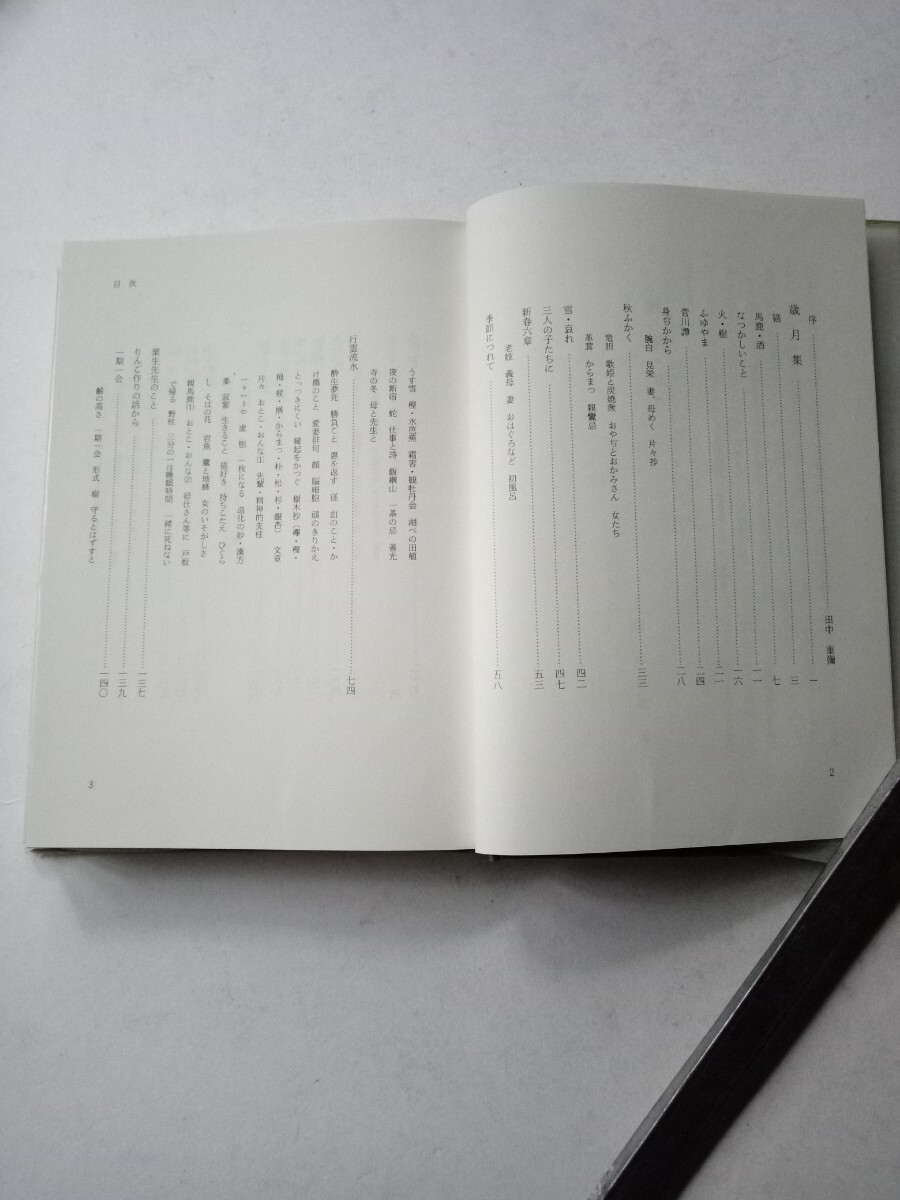 序……田中 重彌…一
歳月集……三
猫……七
馬鹿・酒……一一
なつかしいこと……一六
火・樹……二一
ふゆやま……二四
菅川譚……二八
身ぢかから
腕白 見栄 妻、母めく 片々抄
秋ふかく……三三
竜胆 歌姫と炭焼衆 おやぢとおかみさん 女たち
茗荷 からまつ 親鸞忌
雪・哀れ……四二
三人の子たちに……四七
新春六章……五三
老妓 義母 妻 おはぐろなど 初風呂
季節につれて……五八
2
目次
うす雪 樫・水芭蕉 霜害・観牡丹会 湖べの田植
夜の新宿 蛇 仕事と詩 飯綱山 一茶の忌 善光
寺の冬 母と先生と
行雲流水……七四
酔生夢死 勝負ごと 恩を返す 径 血のこと・か
け橋のこと 愛妻俳句 顔 脳細胞 頭のきりかえ
と「つきにくい 縁起をかつぐ 樹木抄(欅・樫・
栂・椴・橅・からまつ・朴・松・杉・銀杏) 文章
片々 おとこ・おんな(1) 先輩・精神的支柱
一+一=0 虚 胆 一枚になる 造化の妙・漢方
薬 寂寥 生きること 猫好き 持ちこたえ ひぐら
し そばの花 岩魚 鷹と地蜂 女のいそがしさ
親馬鹿(1) おとこ・おんな(2) 絵仕さん等に 戸板
で帰る 野桂 三分の一は睡眠時間 一緒に死ねない
栗生先生のこと……一三七
りんご作りの話から……一三九
一期一会……一四〇
鰍の高さ 一期一会 形式 樹 守るとはずすと
3